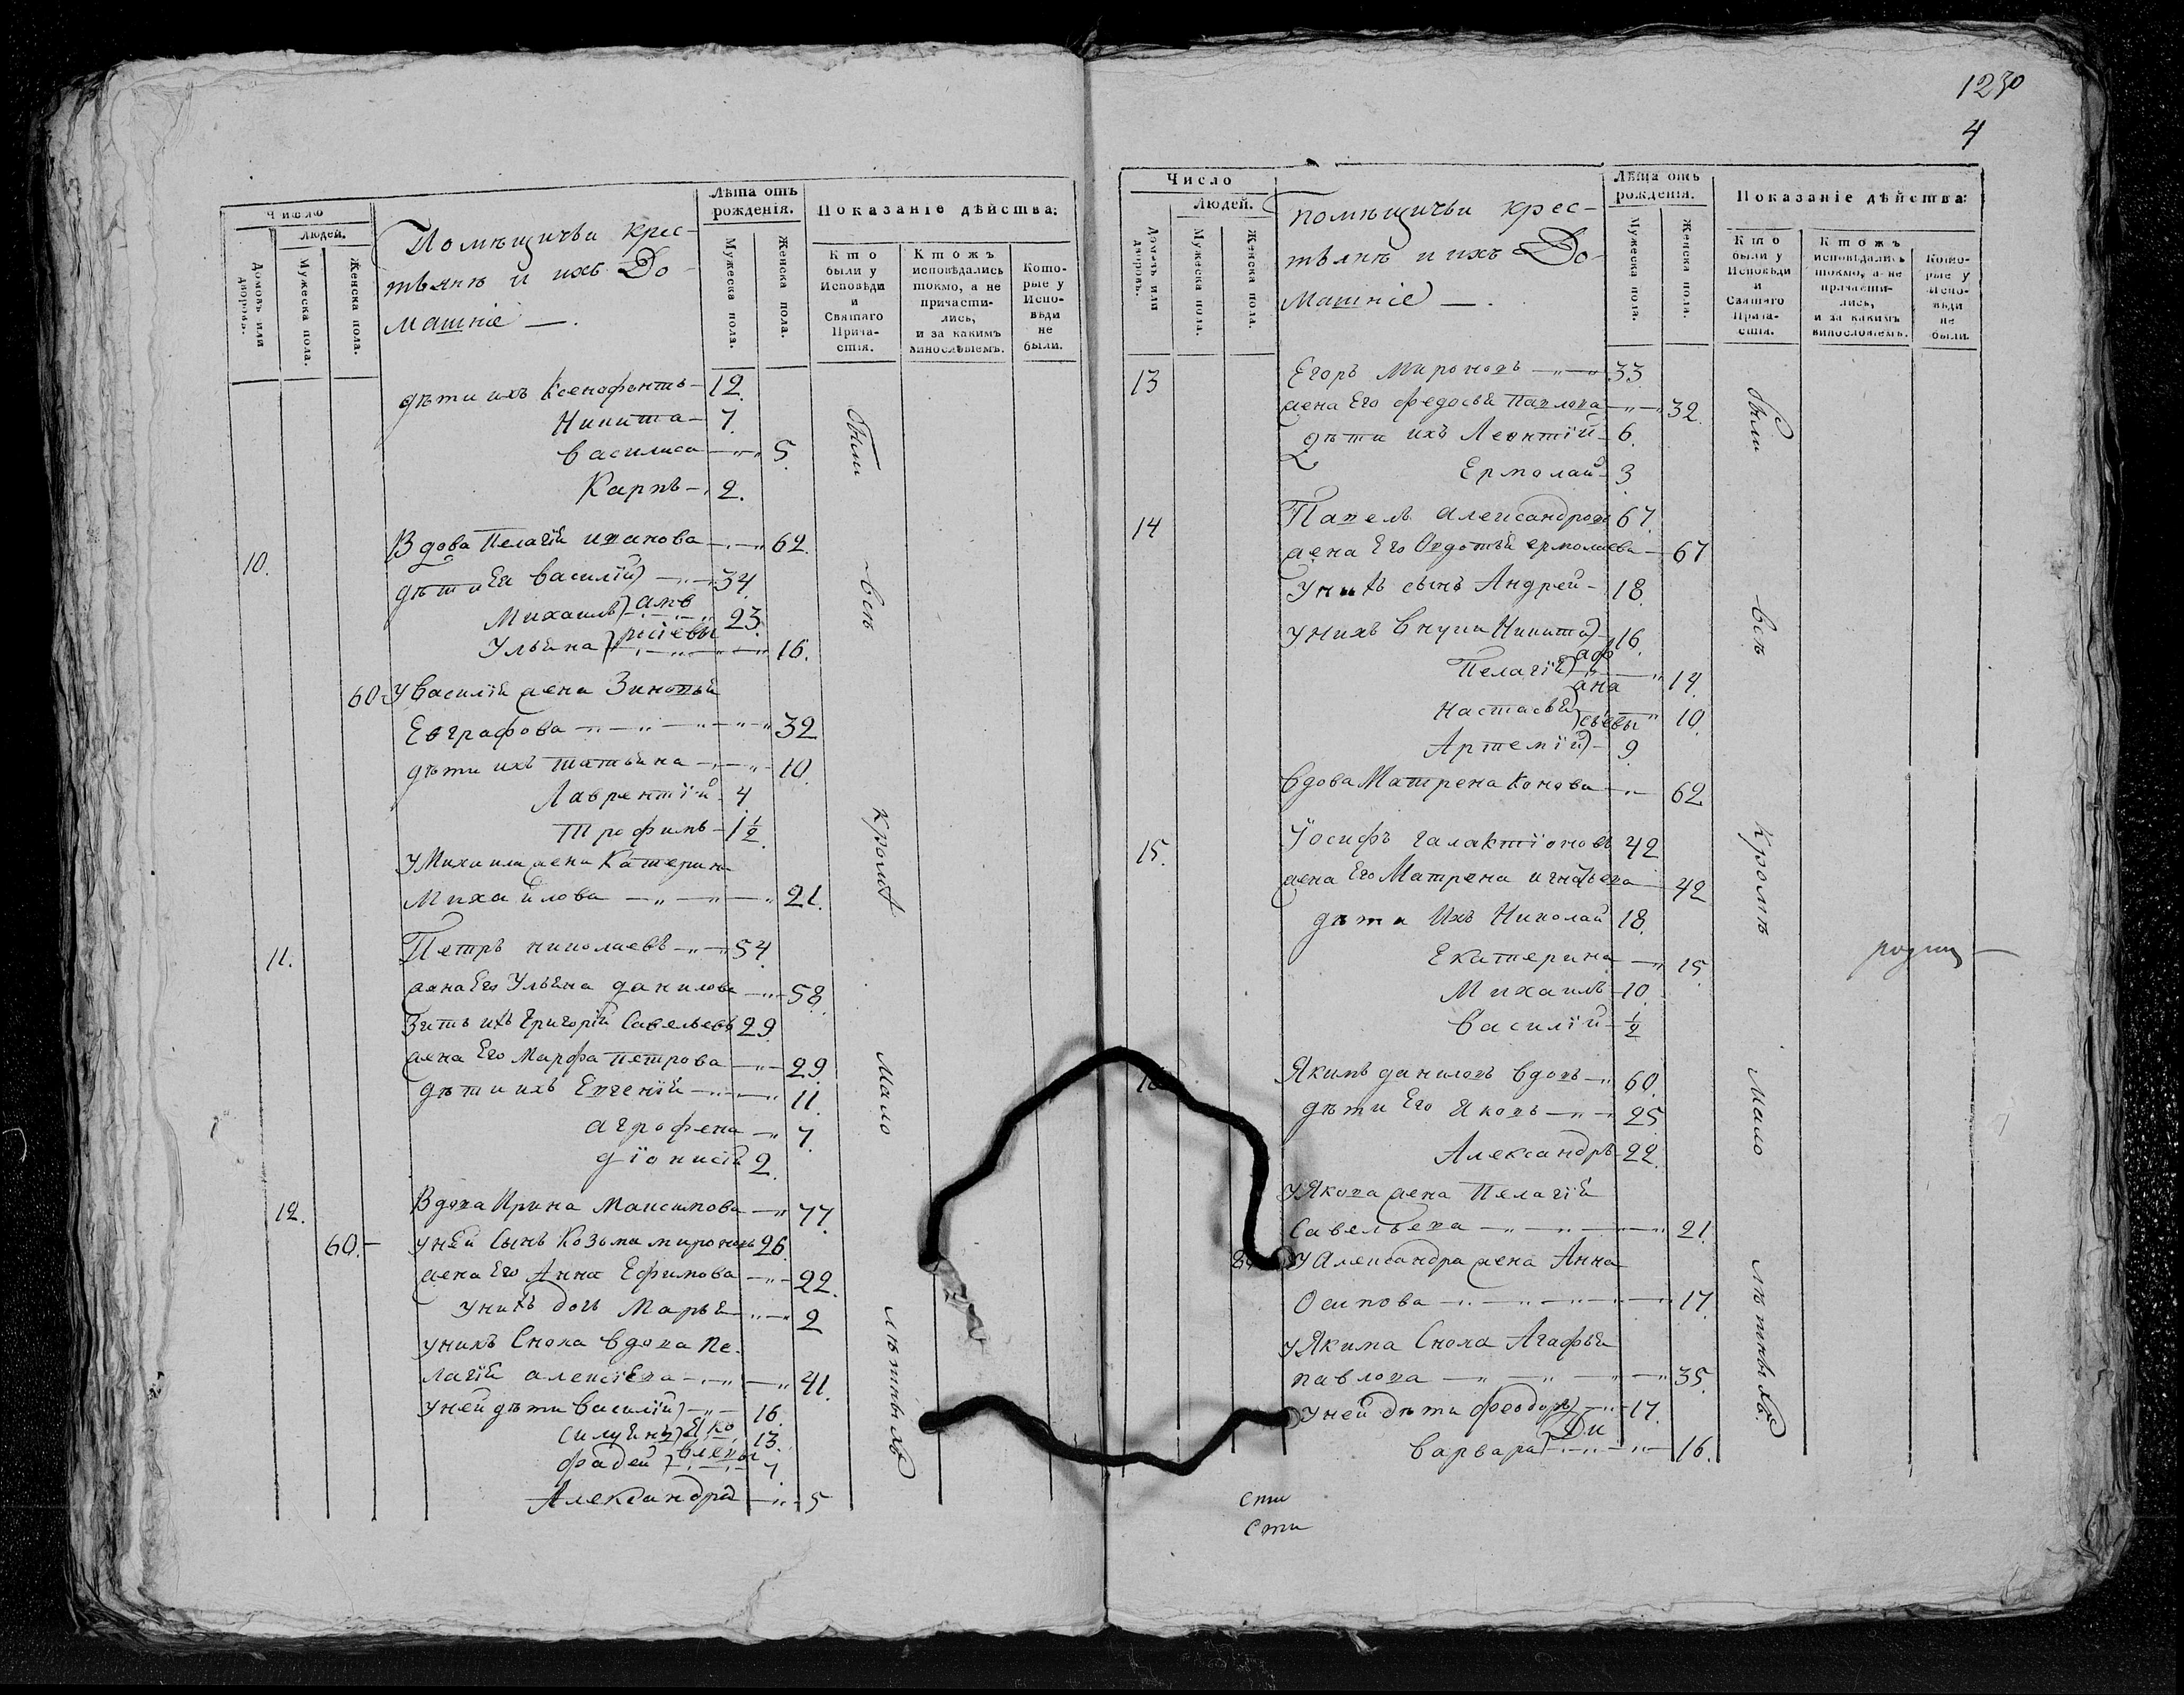 Число
Людей.
Домовъ или дворовъ.
Мужеска пола.
Женска пола.
Помѣщичьи крес-
тьянѣ и ихъ До-
машніе —.
Лѣта отъ рожденія.
Мужеска пола.
Женска пола.
Показаніе дѣйства:
Кто были у Исповѣди и Святаго Прича-стія.
Ктожъ исповѣдались токмо, а не причасти-лись, и за какимъ винословіемъ.
Кото-рые у Испо-вѣди не были.
дѣти ихъ Ксенофонтъ — 12.
Никита — 7.
Василиса — 5.
Карпъ — 2.
10. Вдова Пелагія иванова — 62.
дѣти Ея Василій — 34.
Михаилъ — 23.
Ульяна — 16.
60 У Василія жена Зиновья
Евграфова — 32
дѣти ихъ татьяна — 10.
Лаврентій — 4
Трофимъ — 1½.
У Михаила жена Катерина
Михайлова — 21.
11. Петръ николаевъ — 54.
жена Его Ульяна данилова — 58.
Зять ихъ Григорій Савельевъ 29.
жена Его Марфа петрова — 29.
дѣти ихъ Евгенія — 11.
агрофена — 7.
діонисій 2.
12. Вдова Ирина Максимова — 77.
60. — У ней Сынъ Козьма мироновъ 26.
жена Его Анна Ефимова — 22.
у нихъ дочь Марья — 2
у нихъ Сноха вдова Пе-
лагія алексіева — 41.
У ней дѣти Василій — 16.
Силуянъ Яко 13.
Фадей влевы 7.
Александра — 5
были
всѣ
кромѣ
мало
лѣтныхъ
1230
4
Число
Людей.
Домовъ или дворовъ.
Мужеска пола.
Женска пола.
помѣщичьи крес-
тьянѣ и ихъ До-
машніе —.
Лѣта отъ рожденія.
Мужеска пола.
Женска пола.
Показаніе дѣйства:
Кто были у Исповѣди и Святаго Прича-стія.
Ктожъ исповѣдались токмо, а не причасти-лись, и за какимъ винословіемъ.
Кото-рые у Испо-вѣди не были.
13 Егоръ Мироновъ — 33.
жена Его федосья Павлова — 32.
дѣти ихъ Леонтій — 6.
Ермолай — 3
14 Павелъ александровъ 67.
жена Его Овдотья ермолаева — 67
У нихъ сынъ Андрей — 18.
У нихъ Внуки Никита — 16.
Пелагія афа 14.
Настасья на 10.
Артемій сьевы 9
Вдова Матрена Конова — 62.
15. Іосифъ галактіоновъ 42
жена Его Матрена игнатьева — 42
дѣти Ихъ Николай 18.
Екатерина — 15.
Михаилъ — 10.
Василій — ½
Якимъ даниловъ вдовъ — 60.
дѣти Его Яковъ — 25
Александръ — 22.
У Якова жена Пелагія
Савельева — 21.
У Александра жена Анна
Осипова — 17.
У Якима Сноха Агафья
павлова — 35.
У ней дѣти Феодоръ — 17.
Варвара — 16.
были
всѣ
кромѣ
мало
лѣтныхъ.
сти
сти